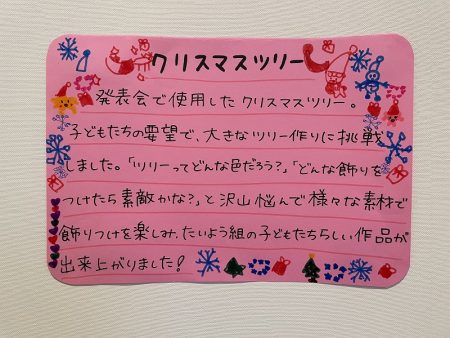 クリスマスツリー
発表会で使用したクリスマスツリー。
子どもたちの要望で、大きなツリー作りに挑戦
しました。「ツリーってどんな色だろう?」「どんな飾りを
つけたら素敵かな?」と沢山悩んで様々な素材で
飾りつけを楽しみ、たいよう組の子どもたちらしい作品が
出来上がりました!